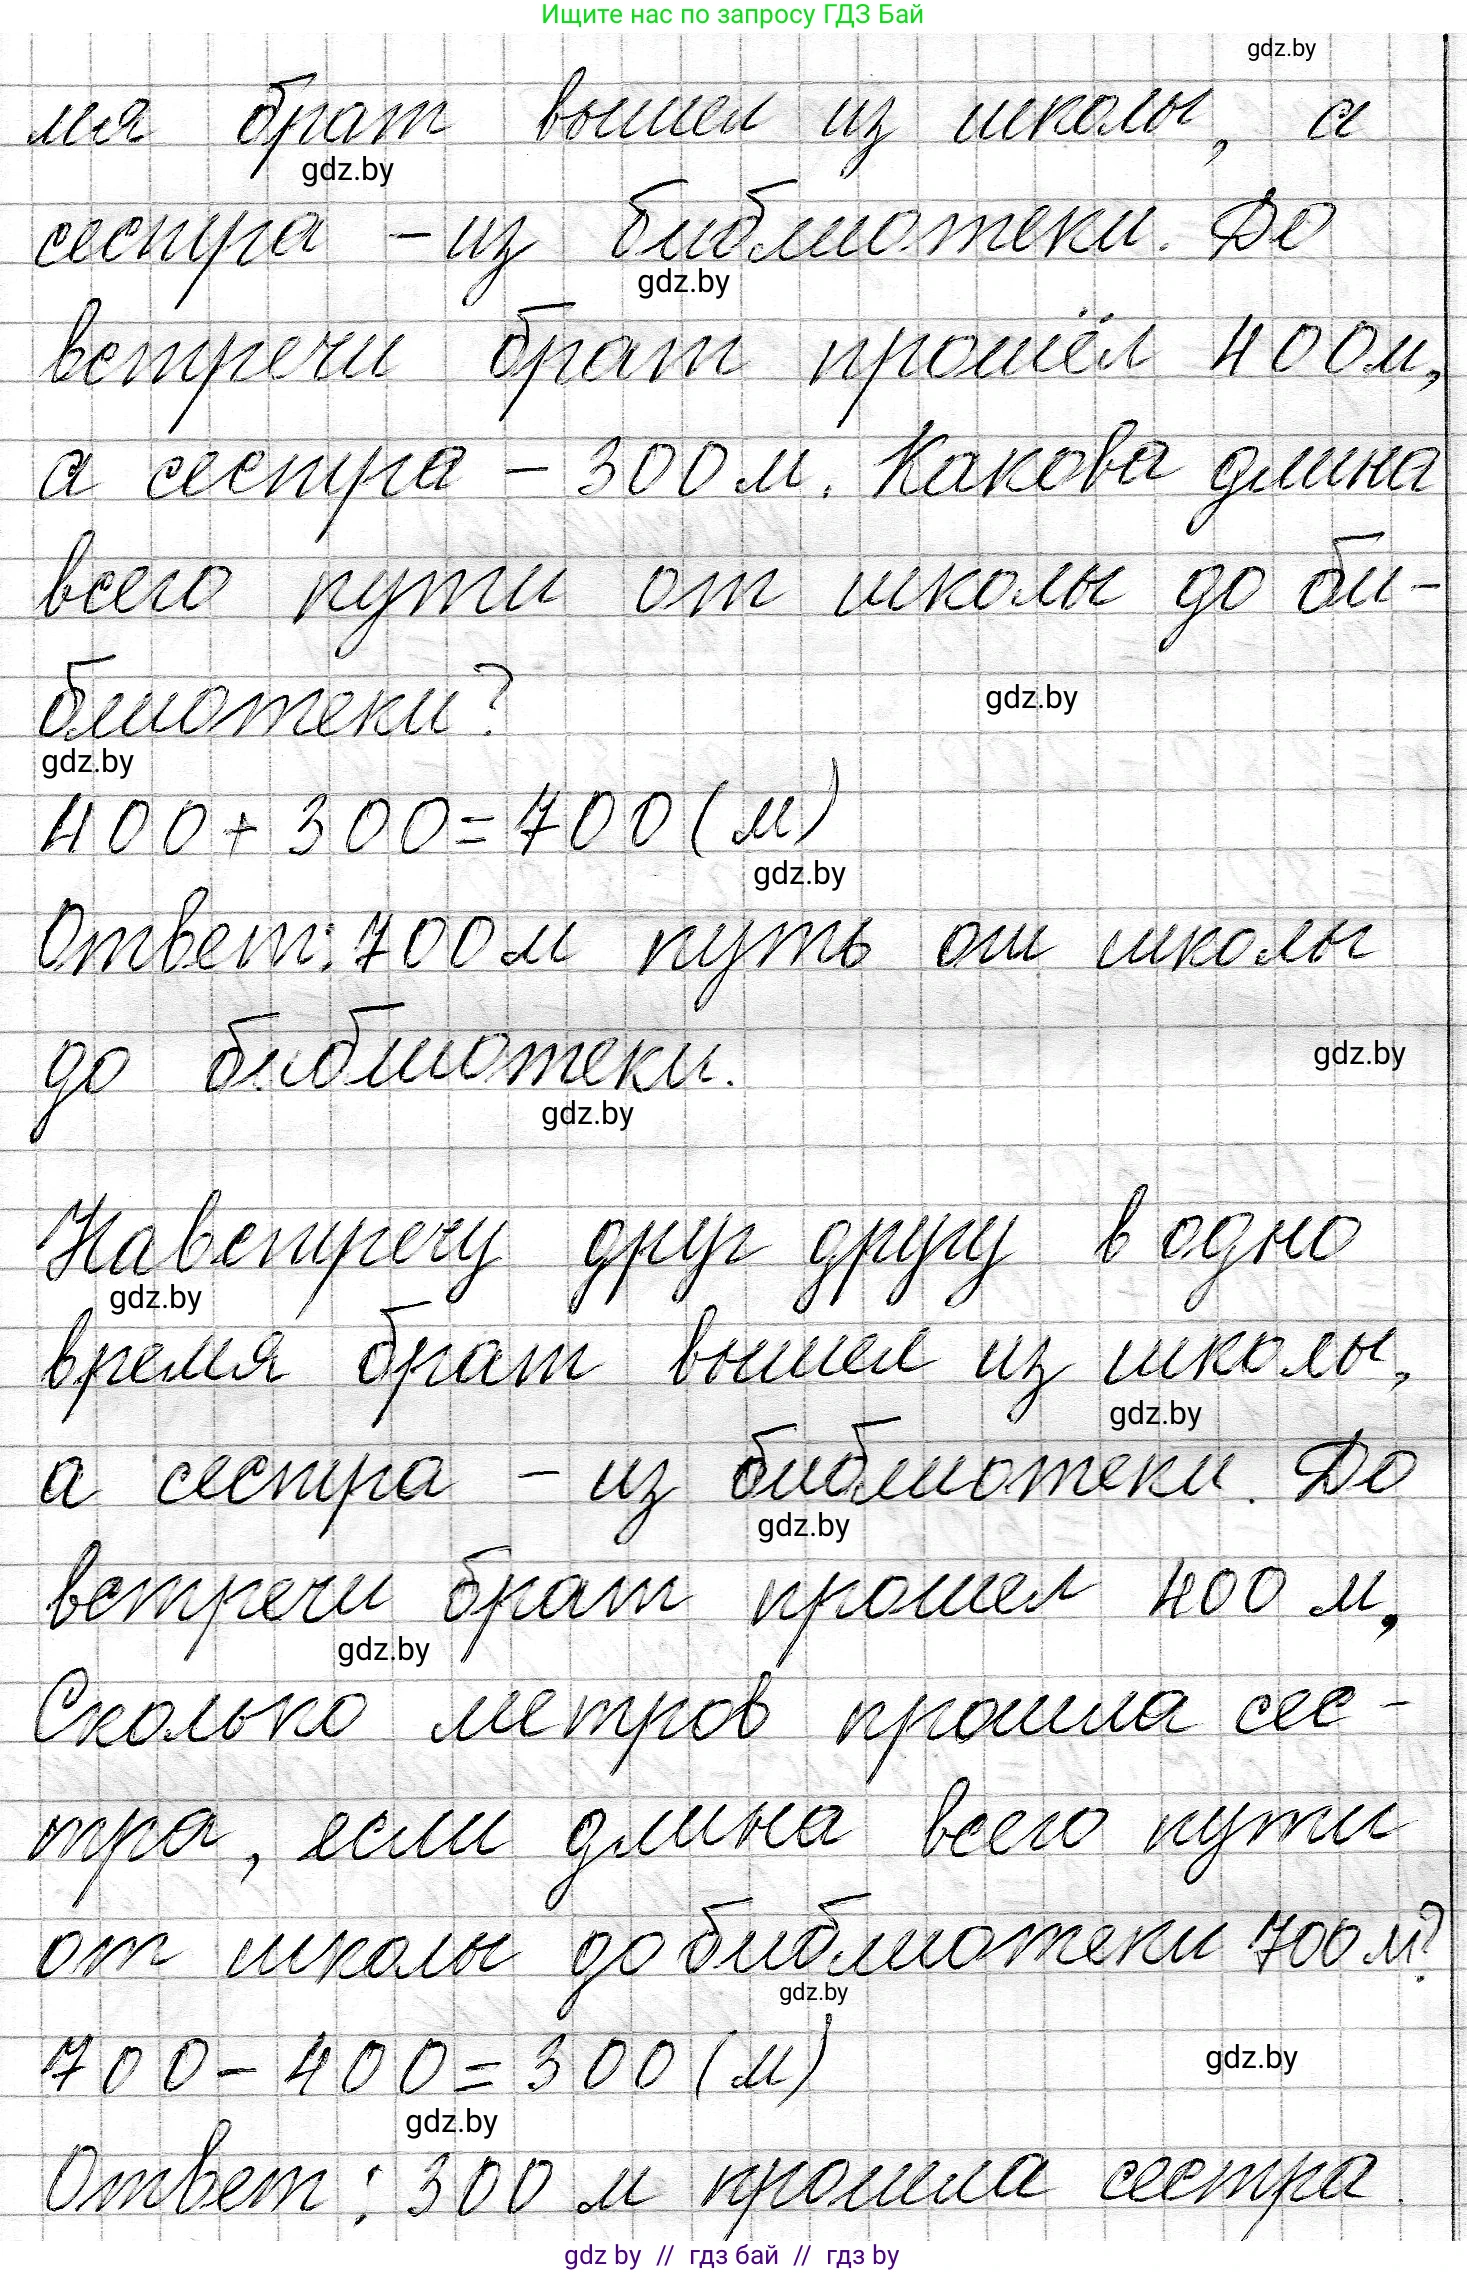 Ищите нас по запросу ГДЗ Бай
gdz.by
мя брат вышел из школы, а
gdz.by
сестра – из библиотеки. До
gdz.by
встречи брат прошёл 400м,
а сестра – 300м. Какова длина
всего пути от школы до би-
блиотеки?
gdz.by
gdz.by
400+300=700(м)
gdz.by
Ответ: 700м путь от школы
до библиотеки.
gdz.by
gdz.by
Навстречу друг другу в одно
gdz.by
время брат вышел из школы,
gdz.by
а сестра – из библиотеки. До
gdz.by
встречи брат прошел 400 м,
gdz.by
Сколько метров прошла сес-
тра, если длина всего пути
от школы до библиотеки 700м?
gdz.by
700-400=300(м)
gdz.by
gdz.by
Ответ: 300 м прошла сестра.
gdz by // гдз бай // гдз by